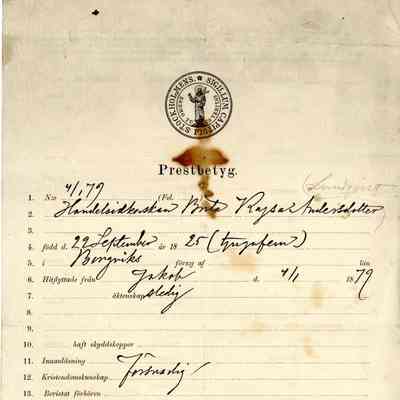 STOCKHOLMENS. ★ SIGILLUM CAPITULI
Prestbetyg.
1. N:o 4/1,79 (Fol.
(Lundqvist
2. Handelsidkerskan Brita Kajsa Andersdotter
)
3.
4. född d. 22 September år 1825 (tjugufem)
5. i Bergviks församl. af län
6. Hitflyttade från Jakob d. 4/1 1879
7. äktenskap ledig
8.
9.
10. haft skyddskoppor
11. Innanläsning
12. Kristendomskunskap Försvarlig
13. Bevistat förhören